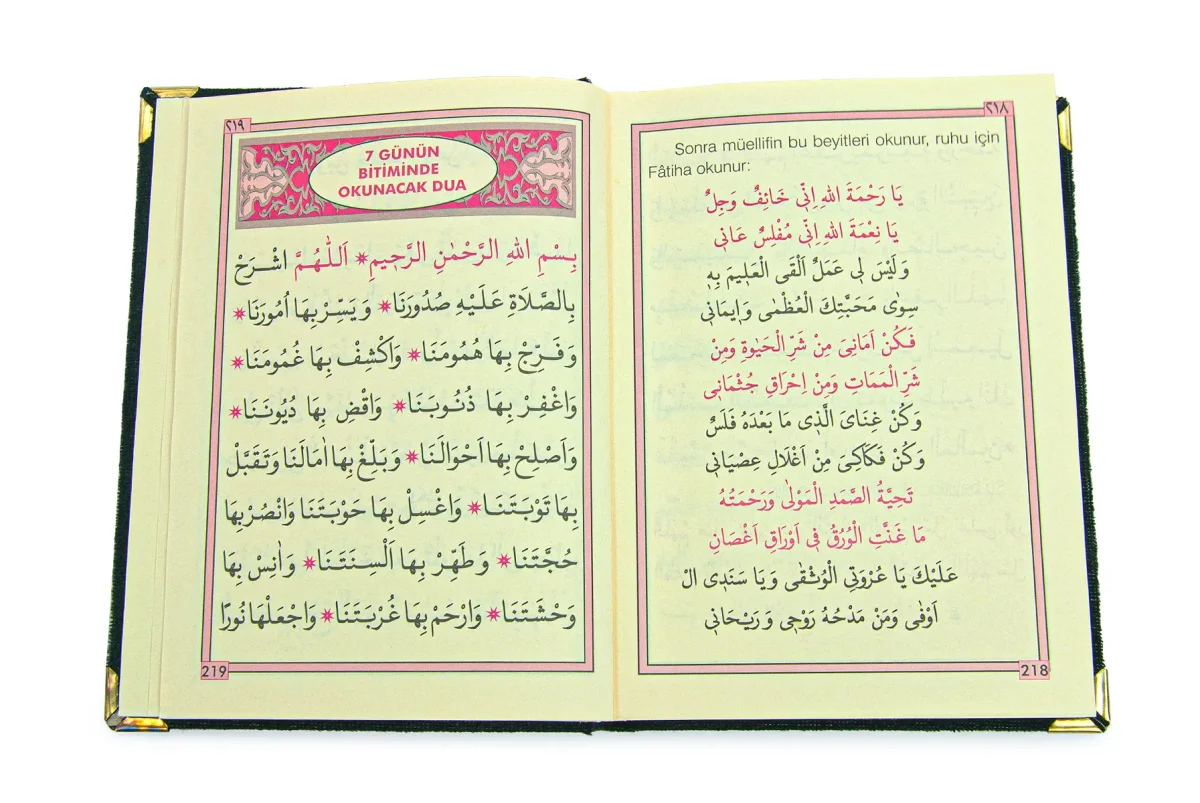 ٢١٨
Sonra müellifin bu beyitleri okunur, ruhu için
Fâtiha okunur:
يَا رَحْمَةَ اللهِ اِنّ۪ي خَائِفٌ وَجِلٌ
يَا نِعْمَةَ اللهِ اِنّ۪ي مُفْلِسٌ عَان۪ي
وَلَيْسَ ل۪ي عَمَلٌ اَلْقَى الْعَل۪يمَ بِه۪
سِوٰى مَحَبَّتِكَ الْعُظْمٰى وَا۪يمَان۪ي
فَكُنْ اَمَان۪ىَ مِنْ شَرِّ الْحَيٰوةِ وَمِنْ
شَرِّ الْمَمَاتِ وَمِنْ اِحْرَاقِ جُثْمَان۪ي
وَكُنْ غِنَاىَ الَّذ۪ي مَا بَعْدَهُ فَلَسٌ
وَكُنْ فَكَاك۪ىَ مِنْ اَغْلَالِ عِصْيَان۪ي
تَحِيَّةُ الصَّمَدِ الْمَوْلٰى وَرَحْمَتُهُ
مَا غَنَّتِ الْوُرْقُ ف۪ي اَوْرَاقِ اَغْصَانِ
عَلَيْكَ يَا عُرْوَتِي الْوُثْقٰى وَيَا سَنَد۪ي الْ
اَوْفٰى وَمَنْ مَدْحُهُ رَوْح۪ي وَرَيْحَان۪ي
218
٢١٩
7 GÜNÜN
BİTİMİNDE
OKUNACAK DUA
بِسْمِ اللهِ الرَّحْمٰنِ الرَّح۪يمِ * اَللّٰهُمَّ اشْرَحْ
بِالصَّلَاةِ عَلَيْهِ صُدُورَنَا * وَيَسِّرْ بِهَا اُمُورَنَا *
وَفَرِّجْ بِهَا هُمُومَنَا * وَاكْشِفْ بِهَا غُمُومَنَا *
وَاغْفِرْ بِهَا ذُنُوبَنَا * وَاقْضِ بِهَا دُيُونَنَا *
وَاَصْلِحْ بِهَا اَحْوَالَنَا * وَبَلِّغْ بِهَا اٰمَالَنَا وَتَقَبَّلْ
بِهَا تَوْبَتَنَا * وَاغْسِلْ بِهَا حَوْبَتَنَا وَانْصُرْ بِهَا
حُجَّتَنَا * وَطَهِّرْ بِهَا اَلْسِنَتَنَا * وَاٰنِسْ بِهَا
وَحْشَتَنَا * وَارْحَمْ بِهَا غُرْبَتَنَا * وَاجْعَلْهَا نُورًا
219